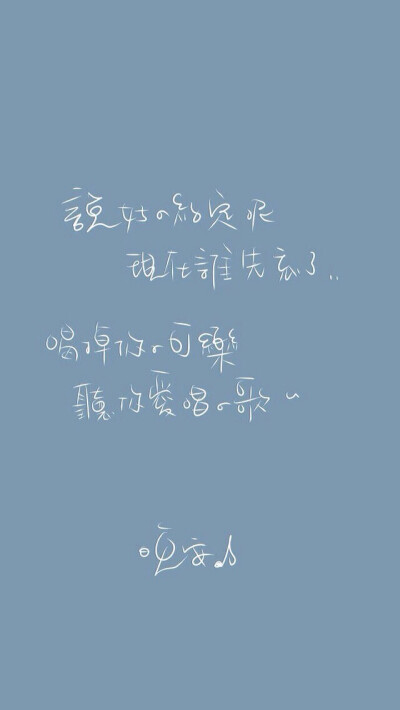 說好の約定呢
現在誰先忘了..
喝掉你の可樂
聽你愛唱の歌~
晚安♪